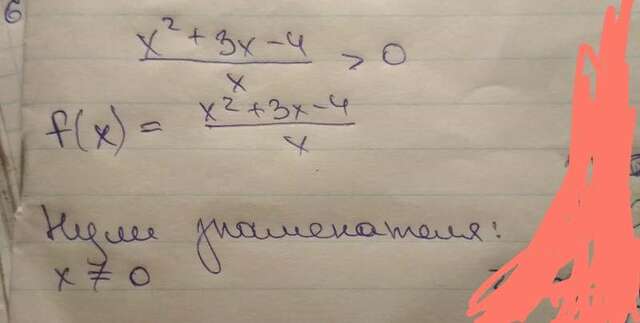 6
x² + 3x - 4 / x > 0
f(x) = x² + 3x - 4 / x
Нули знаменателя:
x ≠ 0